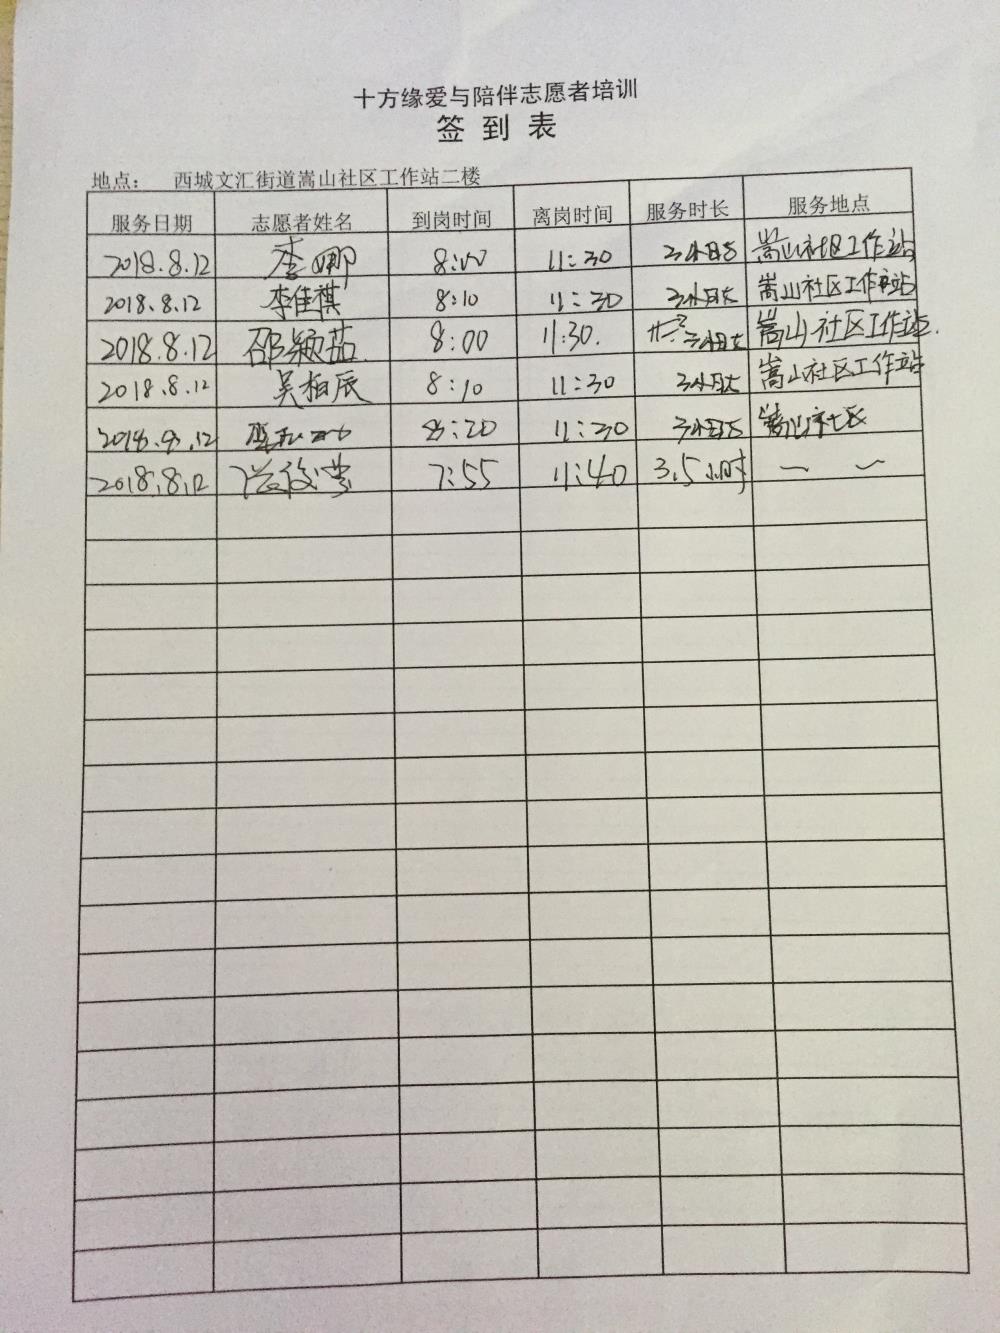 十方缘爱与陪伴志愿者培训
签到表
地点： 西城文汇街道嵩山社区工作站二楼
服务日期 志愿者姓名 到岗时间 离岗时间 服务时长 服务地点
2018.8.12 李娜 8:00 11:30 3小时 嵩山社区工作站
2018.8.12 李佳祺 8:10 11:30 3小时 嵩山社区工作站
2018.8.12 邵颖茹 8:00 11:30. 3小时 嵩山社区工作站.
2018.8.12 吴柏辰 8:10 11:30 3小时 嵩山社区工作站
2018.8.12 8:20 11:30 3小时 嵩山社区
2018.8.12 7:55 11:40 3.5小时